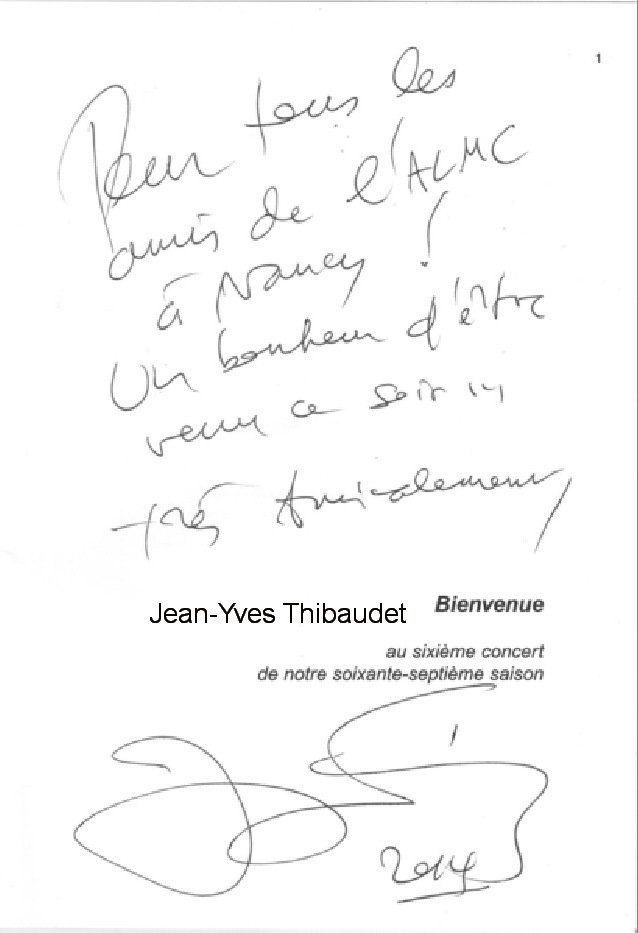 1
Pour tous les
amis de l'ALMC
à Nancy !
Un bonheur d'être
venu ce soir
très Amicalement,
Jean-Yves Thibaudet
Bienvenue
au sixième concert
de notre soixante-septième saison
2014